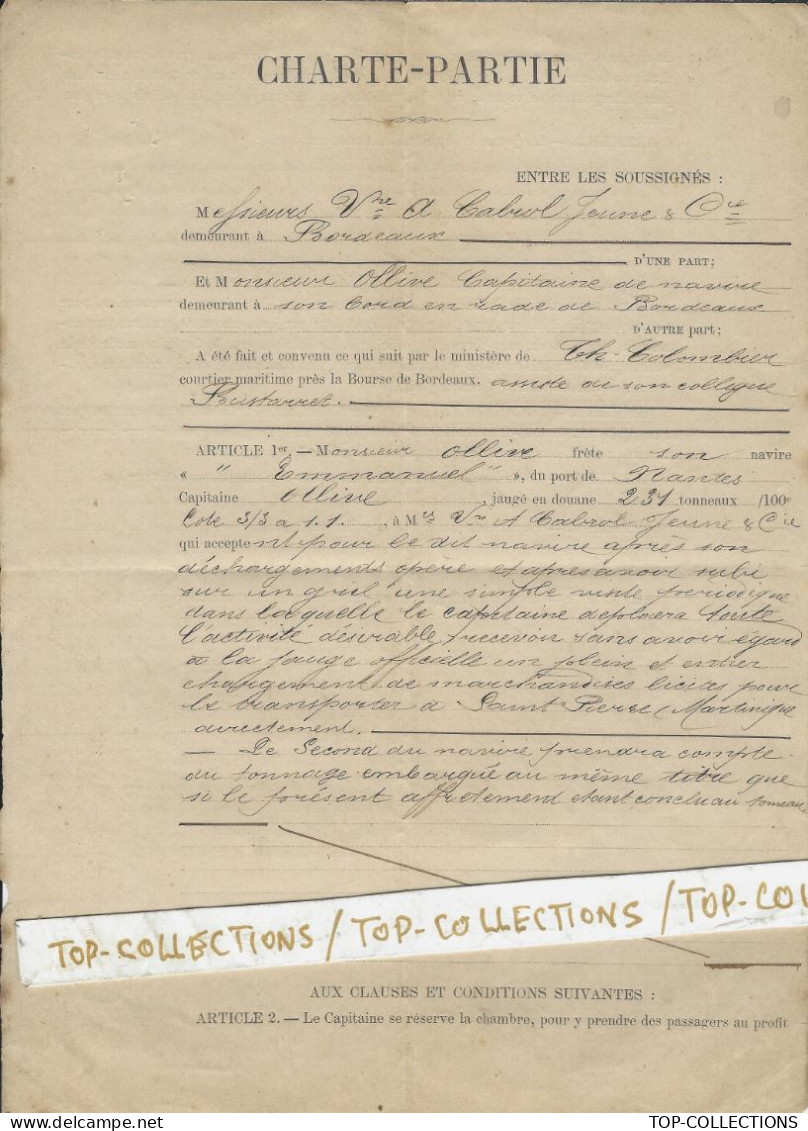 CHARTE-PARTIE
ENTRE LES SOUSSIGNÉS :
Messieurs Vve A Cabrol Jeune & Cie
demeurant à Bordeaux
D'UNE PART;
Et Monsieur Ollive Capitaine de navire
demeurant à son bord en rade de Bordeaux
D'AUTRE part;
A été fait et convenu ce qui suit par le ministère de Th Colombier
courtier maritime près la Bourse de Bordeaux. assisté de son collègue
ARTICLE 1er. — Monsieur Ollive frète son navire
« " Emmanuel " », du port de Nantes
Capitaine Ollive, jaugé en douane 231 tonneaux /100e
Cote 3/3 a 1.1., à Mrs Vve A Cabrol Jeune & Cie
qui acceptent pour le dit navire après son
déchargements opéré et après avoir subi
sur un gril une simple visite périodique
dans laquelle le capitaine deploiera toute
l'activité désirable, recevoir sans avoir égard
à la jauge officielle un plein et entier
chargement de marchandises licites pour
le transporter à Saint Pierre, Martinique
directement.
— Le Second du navire prendra compte
du tonnage embarqué au même titre que
si le présent affretement étant conclu au tonneau
TOP-COLLECTIONS / TOP-COLLECTIONS / TOP-COL
AUX CLAUSES ET CONDITIONS SUIVANTES :
ARTICLE 2. — Le Capitaine se réserve la chambre, pour y prendre des passagers au profit
TOP-COLLECTIONS